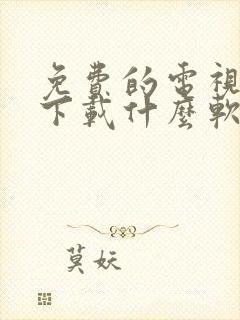 免費的電視
下載什麼軟
莫妖